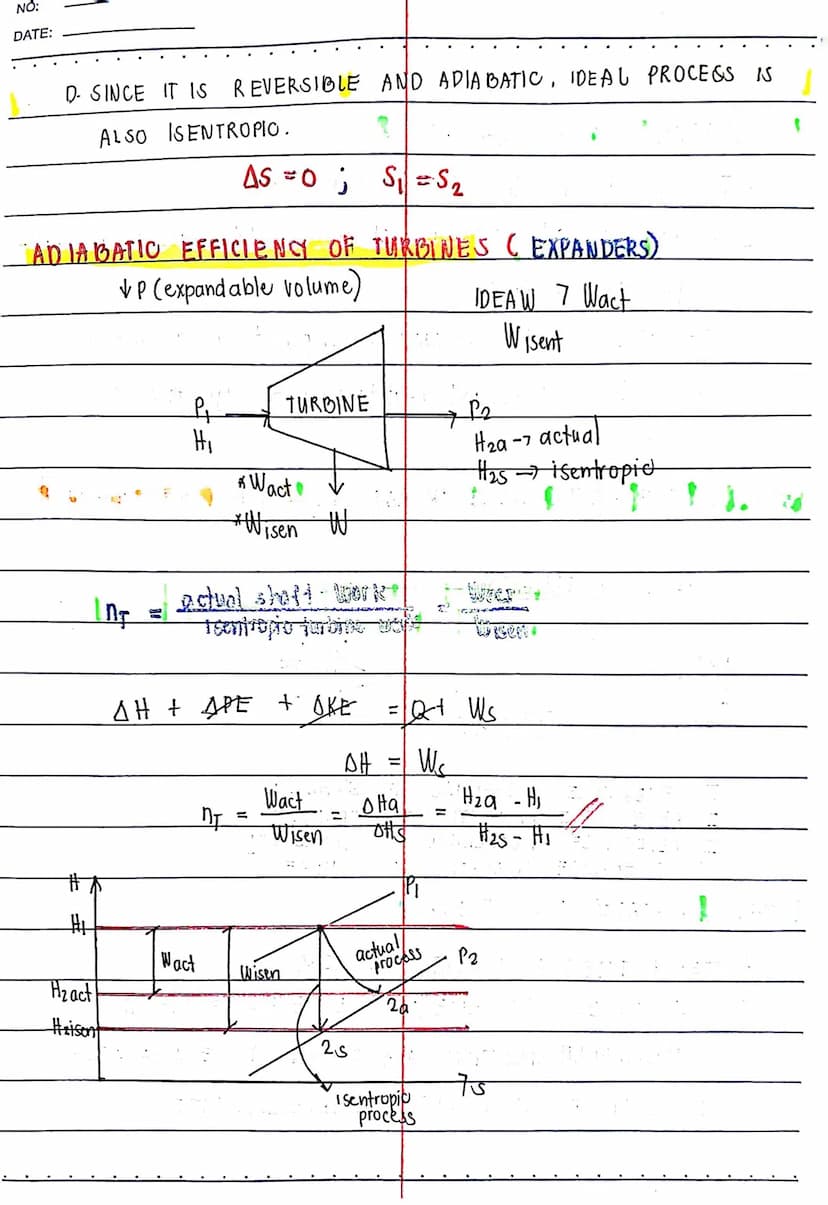 NO:
DATE:
D. SINCE IT IS REVERSIBLE AND ADIABATIC, IDEAL PROCESS IS
ALSO ISENTROPIC.
ΔS = 0 ; S₁ = S₂
ADIABATIC EFFICIENCY OF TURBINES (EXPANDERS)
↓P (expandable volume)
IDEAW > Wact
Wisent
P₁
H₁
TURBINE
P₂
H₂a → actual
H₂s → isentropic
*Wact
*Wisen W
η_T = actual shaft work / isentropic turbine work = Wact / Wisen
ΔH + ΔPE + ΔKE = Q + Ws
ΔH = Ws
η_T = Wact / Wisen = ΔHa / ΔHs = H₂a - H₁ / H₂s - H₁
H
P₁
H₁
Wact
Wisen
actual
process
P₂
H₂act
2a
H₂isen
2s
s
isentropic
process